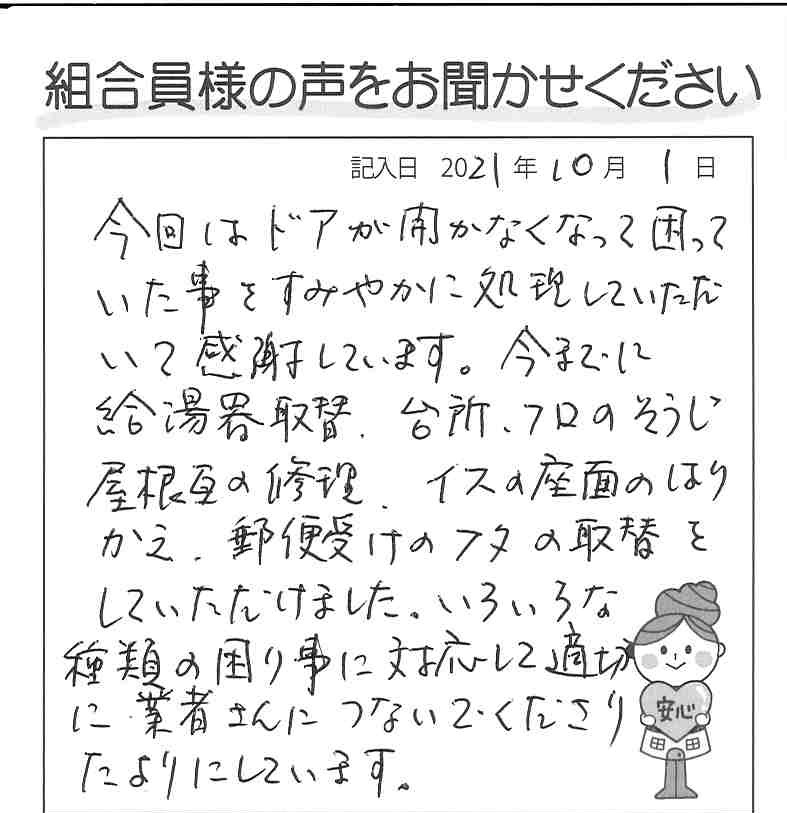 組合員様の声をお聞かせください
記入日 2021年10月1日
今回はドアが開かなくなって困って
いた事をすみやかに処理していただ
いて感謝しています。今までに
給湯器取替、台所、フロのそうじ
屋根瓦の修理、イスの座面のはり
かえ、郵便受けのフタの取替を
していただけました。いろいろな
種類の困り事に対応して適切
に業者さんにつないでくださり
たよりにしています。
安心